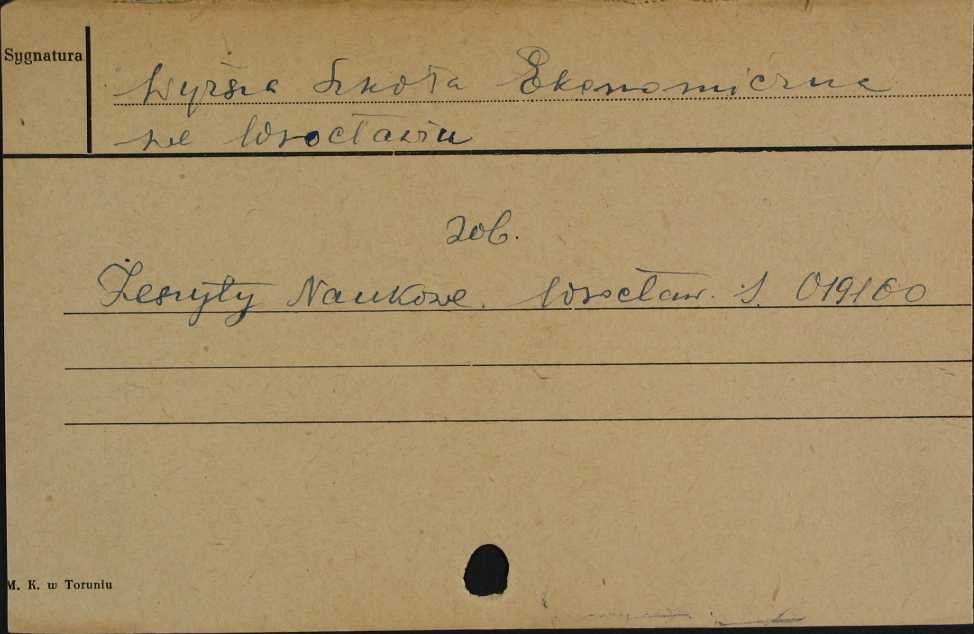 Sygnatura
Wyższa Szkoła Ekonomiczna
we Wrocławiu
zob.
Zeszyty Naukowe. Wrocław. S. 019160
M. K. w Toruniu